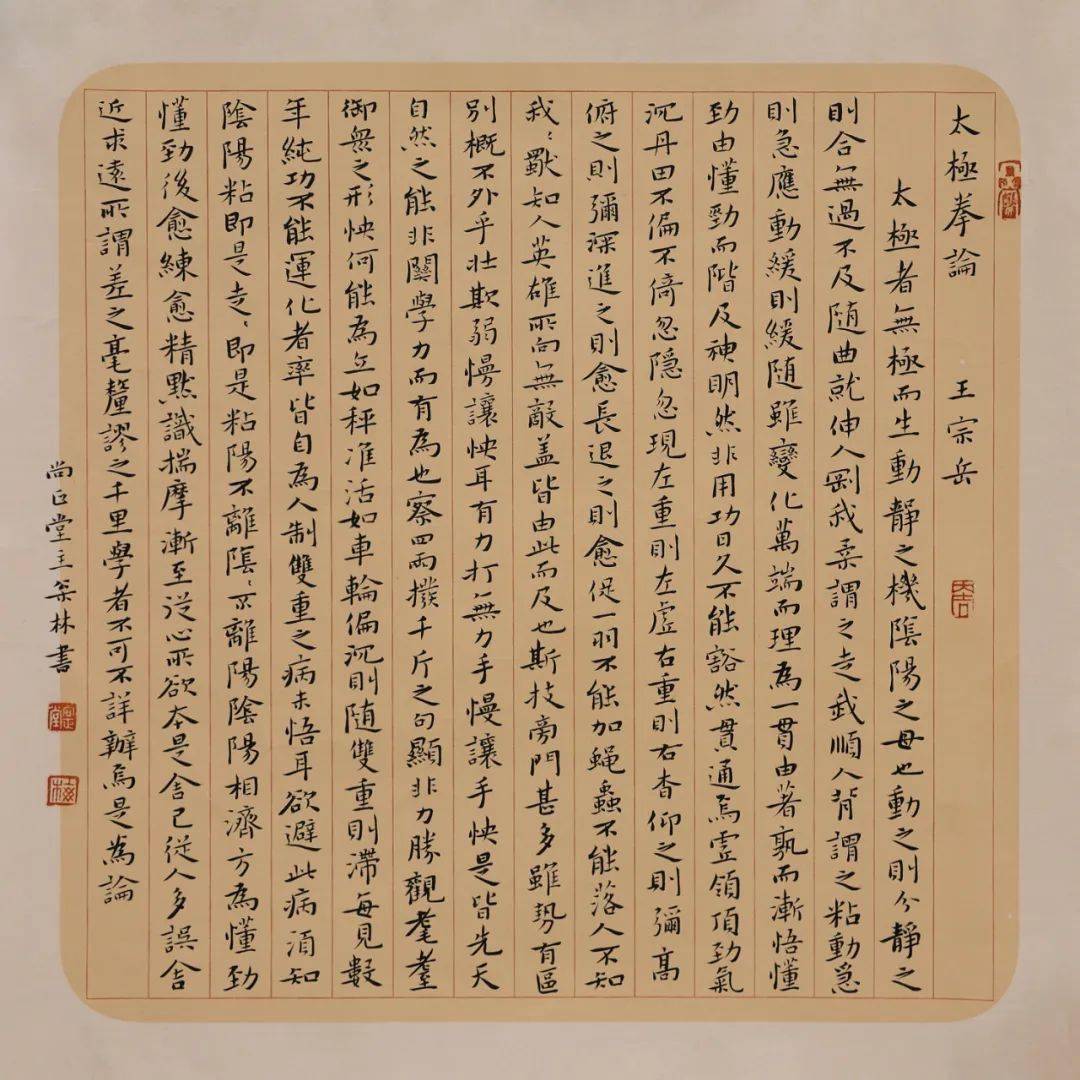 太極拳論 王宗岳
太極者無極而生動靜之機陰陽之母也動之則分靜之
則合無過不及随曲就伸人剛我柔謂之走我順人背謂之粘動急
則急應動緩則緩随雖變化萬端而理為一貫由著孰而漸悟懂
勁由懂勁而階及神明然非用功日久不能豁然貫通焉虛領頂勁氣
沉丹田不偏不倚忽隱忽現左重則左虛右重則右杳仰之則彌高
俯之則彌深進之則愈長退之則愈促一羽不能加蝇蟲不能落人不知
我〻獸知人英雄所向無敵盖皆由此而及也斯技旁門甚多雖勢有區
別概不外乎壮欺弱慢讓快耳有力打無力手慢讓手快是皆先天
自然之能非關學力而有為也察四兩撥千斤之句顯非力勝觀耄耋
御衆之形快何能為立如秤准活如車輪偏沉則随雙重則滯每見數
年純功不能運化者率皆自為人制雙重之病未悟耳欲避此病須知
陰陽粘即是走〻即是粘陽不離陰〻不離陽陰陽相濟方為懂勁
懂勁後愈練愈精黙識揣摩漸至從心所欲本是舍己從人多誤舍
近求遠所謂差之毫釐謬之千里學者不可不詳辦焉是為論
尚正堂主 林書